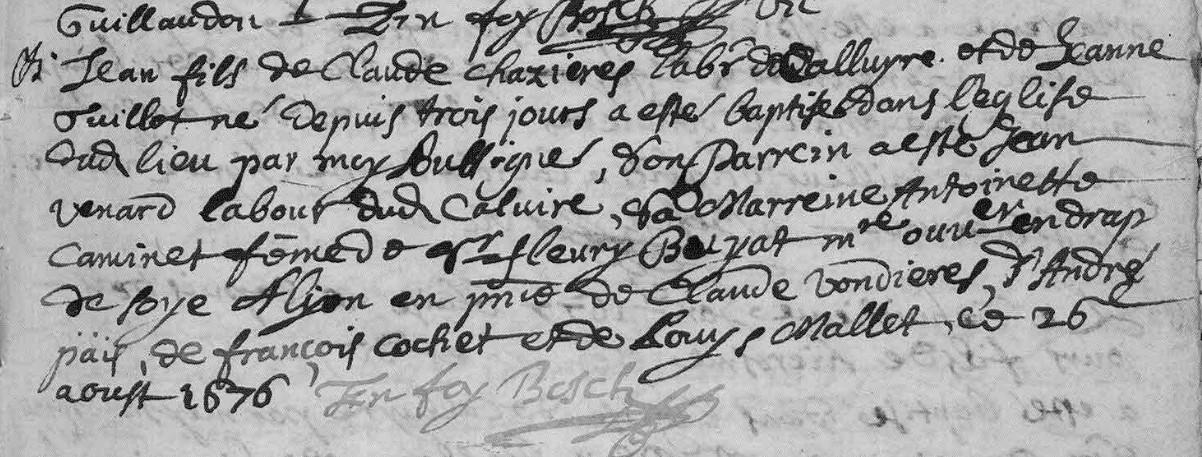 Guillaudon En foy Bosch
Jean fils de Claude chazieres labr de Calluyre. et de Jeanne
Guillot né depuis trois jours a esté baptisé dans leglise
dud lieu par moy soussigné, son Parrein a esté Jean
venard labour dud Caluire, sa Marreine Antoinette
caminet feme de Sr fleury Beypat mre ouuer en drap
de soye A lion en pnce de Claude vondieres, d'André
païs, de françois cochet et de Louys Mallet, ce 26
aoust 1676 En foy Bosch